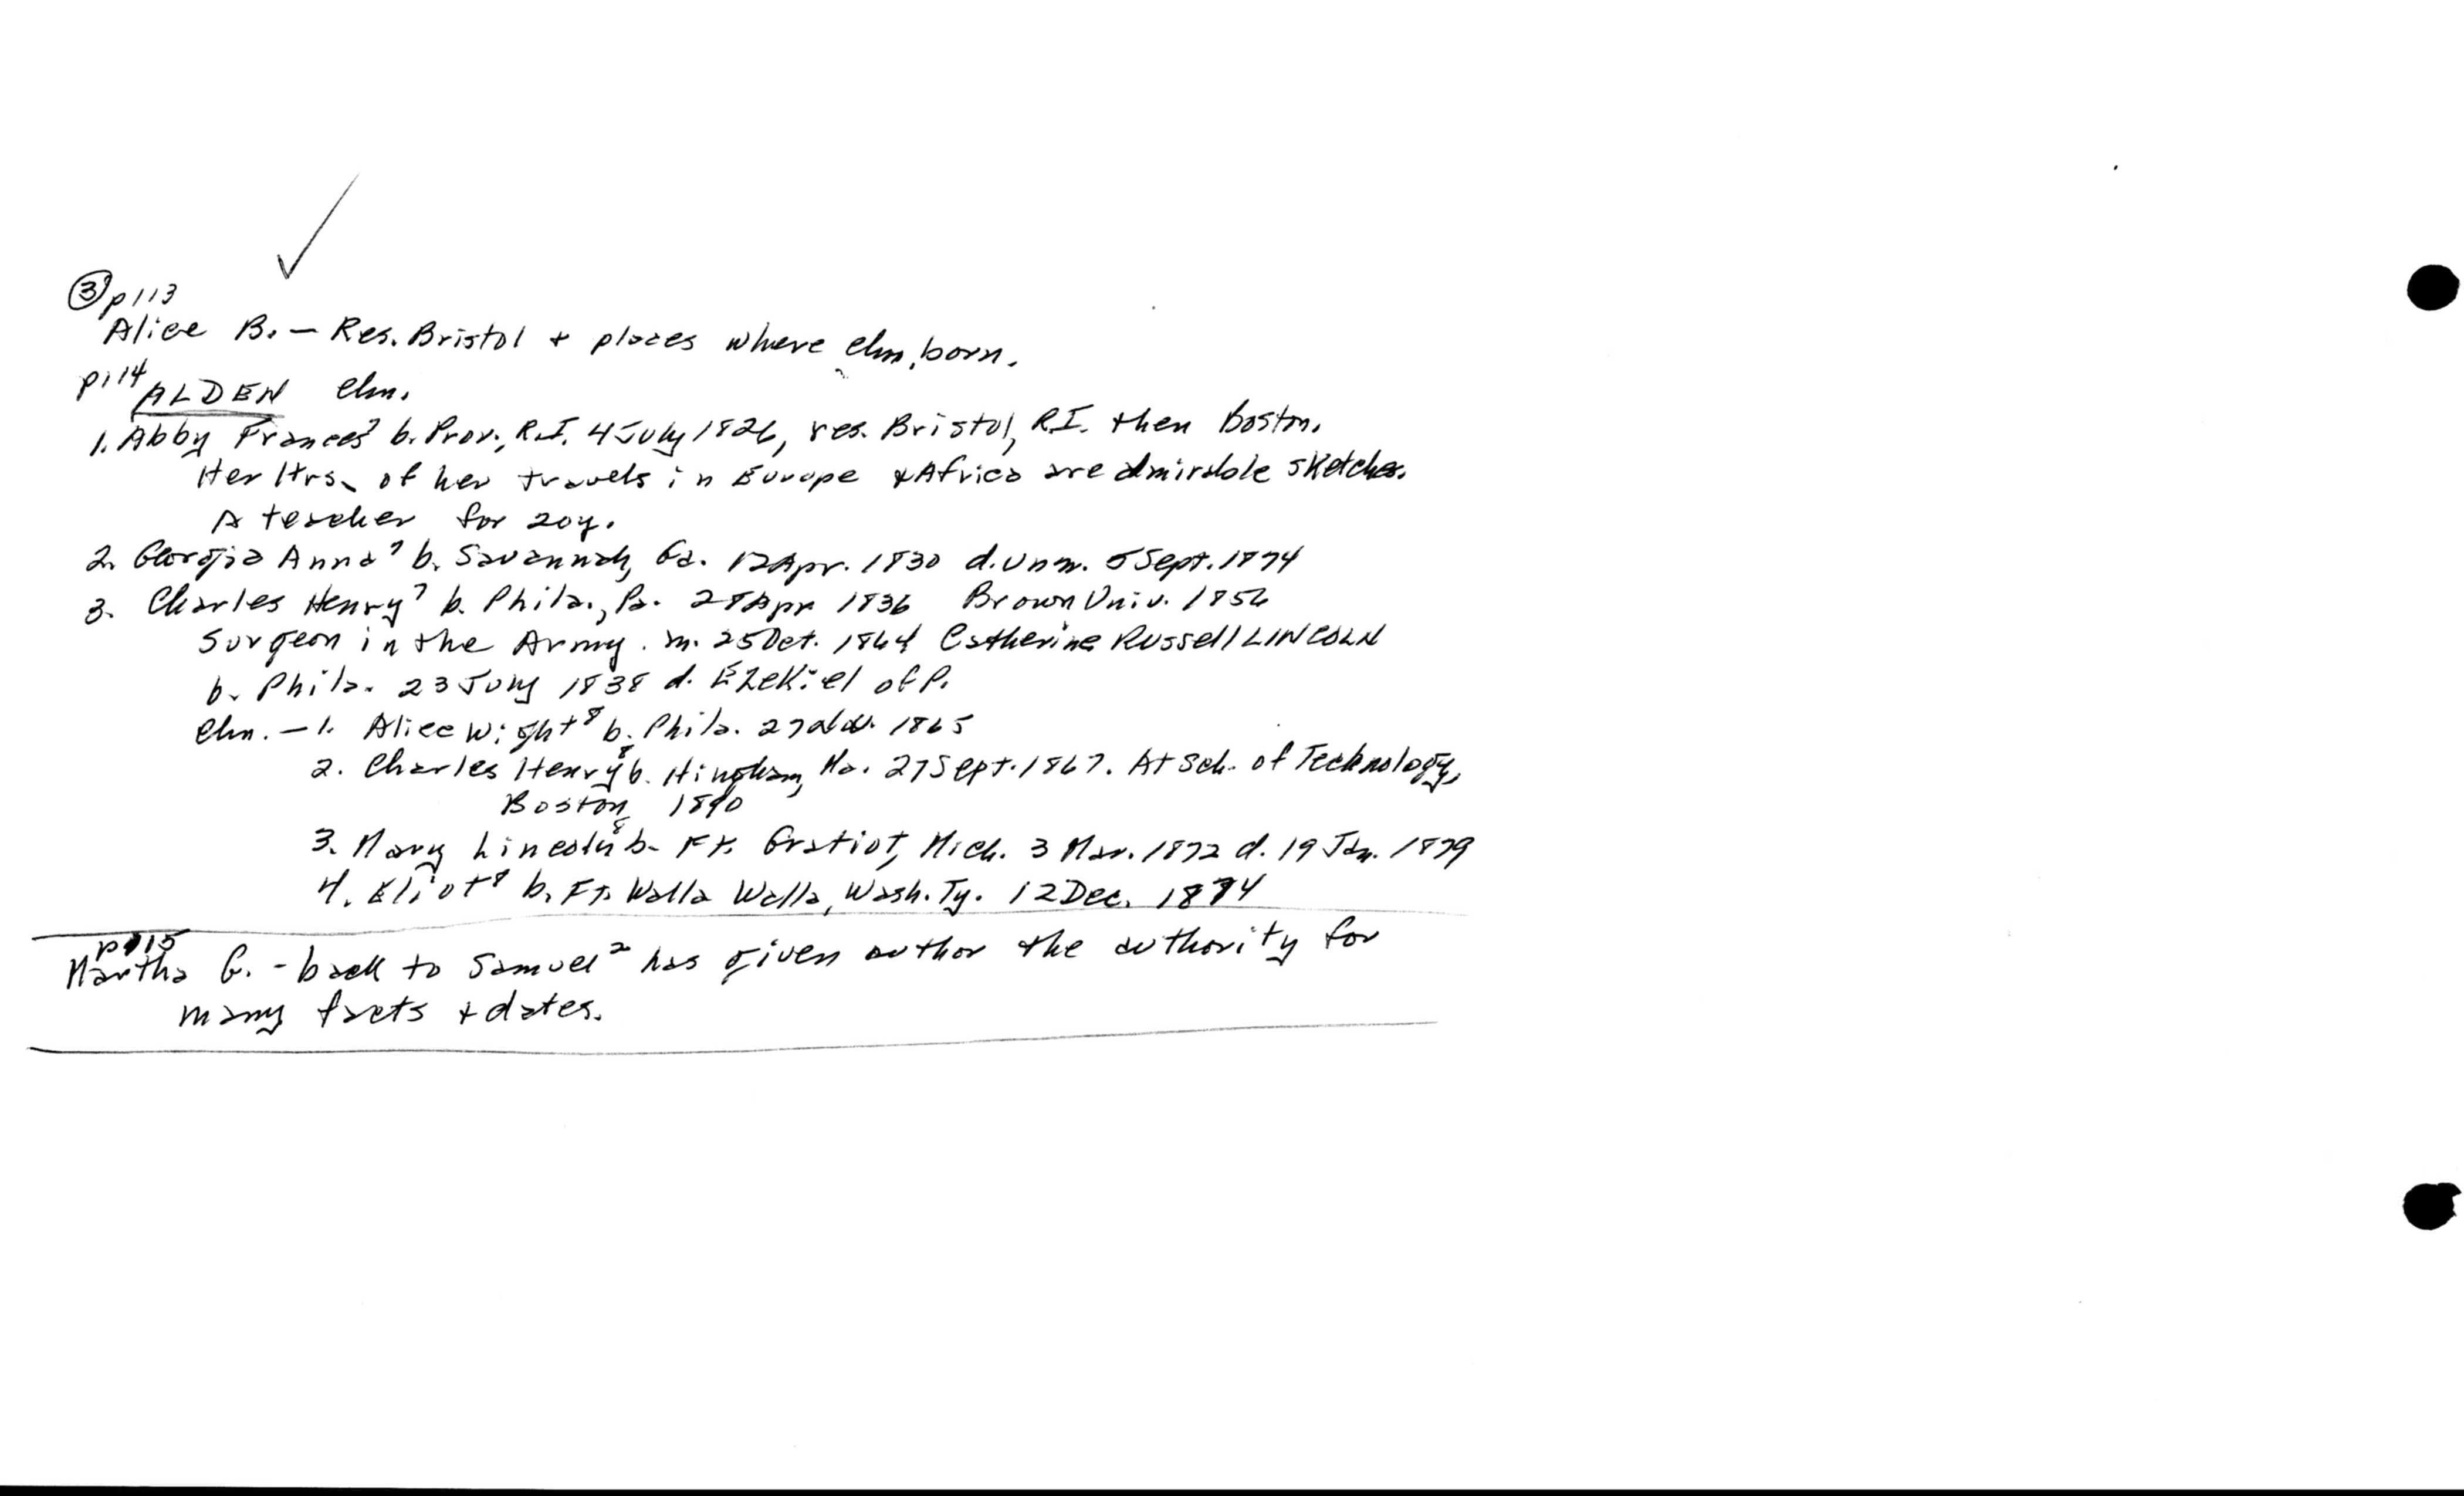 ③ p113
Alice B. — Res. Bristol + places where chn. born.
p114 ALDEN chn.
1. Abby Frances⁷ b. Prov., R.I. 4 July 1826, res. Bristol, R.I. then Boston.
Her ltrs. of her travels in Europe + Africa are admirable sketches.
A teacher for 20y.
2. Georgia Anna⁷ b. Savannah, Ga. 12 Apr. 1830 d. unm. 5 Sept. 1874
3. Charles Henry⁷ b. Phila., Pa. 28 Apr 1836 Brown Univ. 1856
Surgeon in the Army. m. 25 Oct. 1864 Catherine Russell LINCOLN
b. Phila. 23 July 1838 d. Ezekiel of P.
Chn. — 1. Alice Wight⁸ b. Phila. 27 Nov. 1865
2. Charles Henry⁸ b. Hingham, Ma. 27 Sept. 1867. At Sch. of Technology,
Boston 1890
3. Mary Lincoln⁸ b. Ft. Gratiot, Mich. 3 Mar. 1872 d. 19 Jan. 1879
4. Eliot⁸ b. Ft. Walla Walla, Wash. Ty. 12 Dec. 1874
p115
Martha G. - back to Samuel² has given author the authority for
many facts + dates.